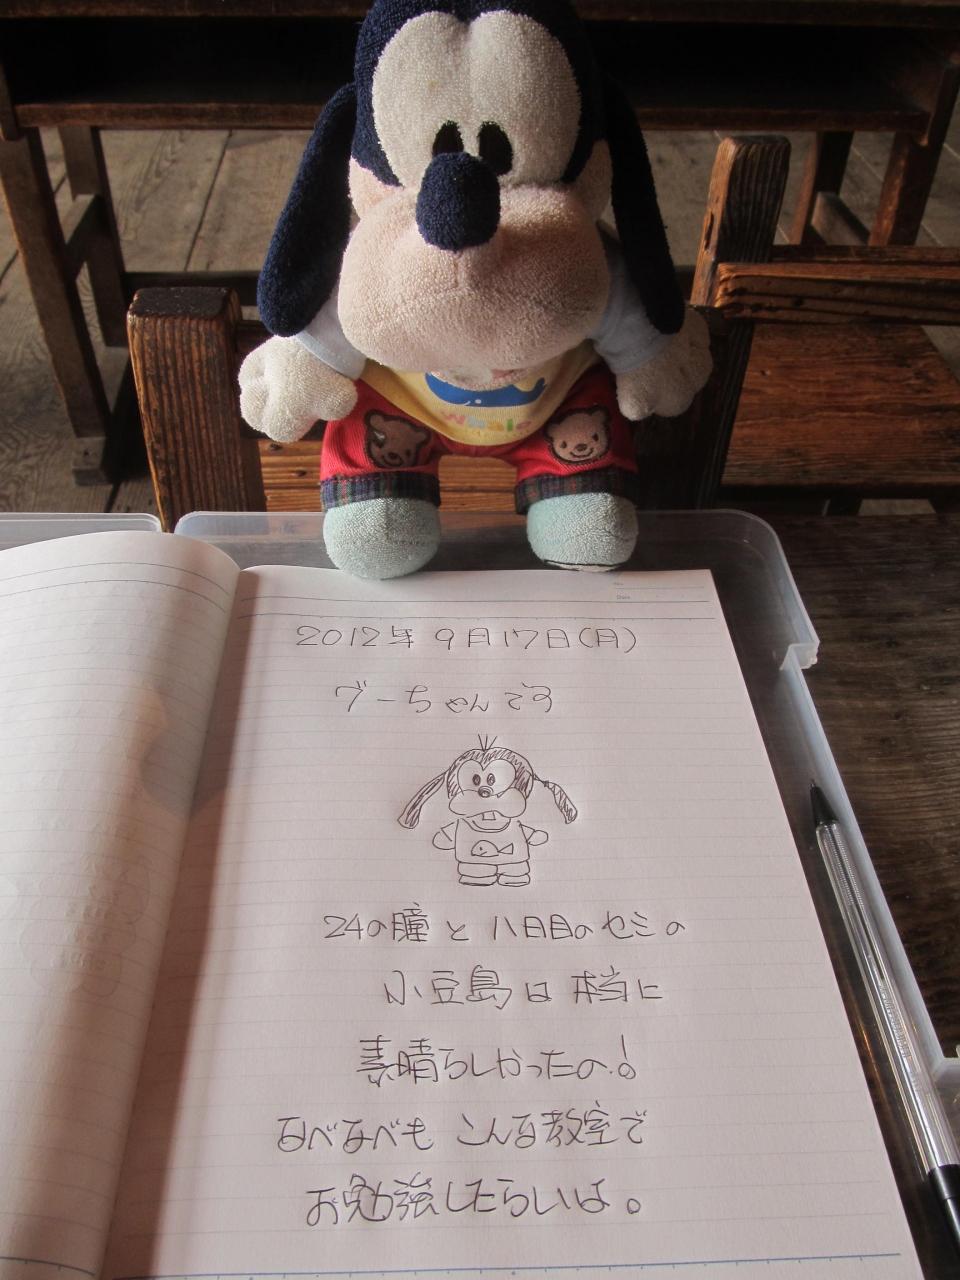 whale
2012年 9月17日(月)
グーちゃんです
24の瞳と八日目のセミの
小豆島は本当に
素晴らしかったの!
なべなべも こんな教室で
お勉強したらしいは。